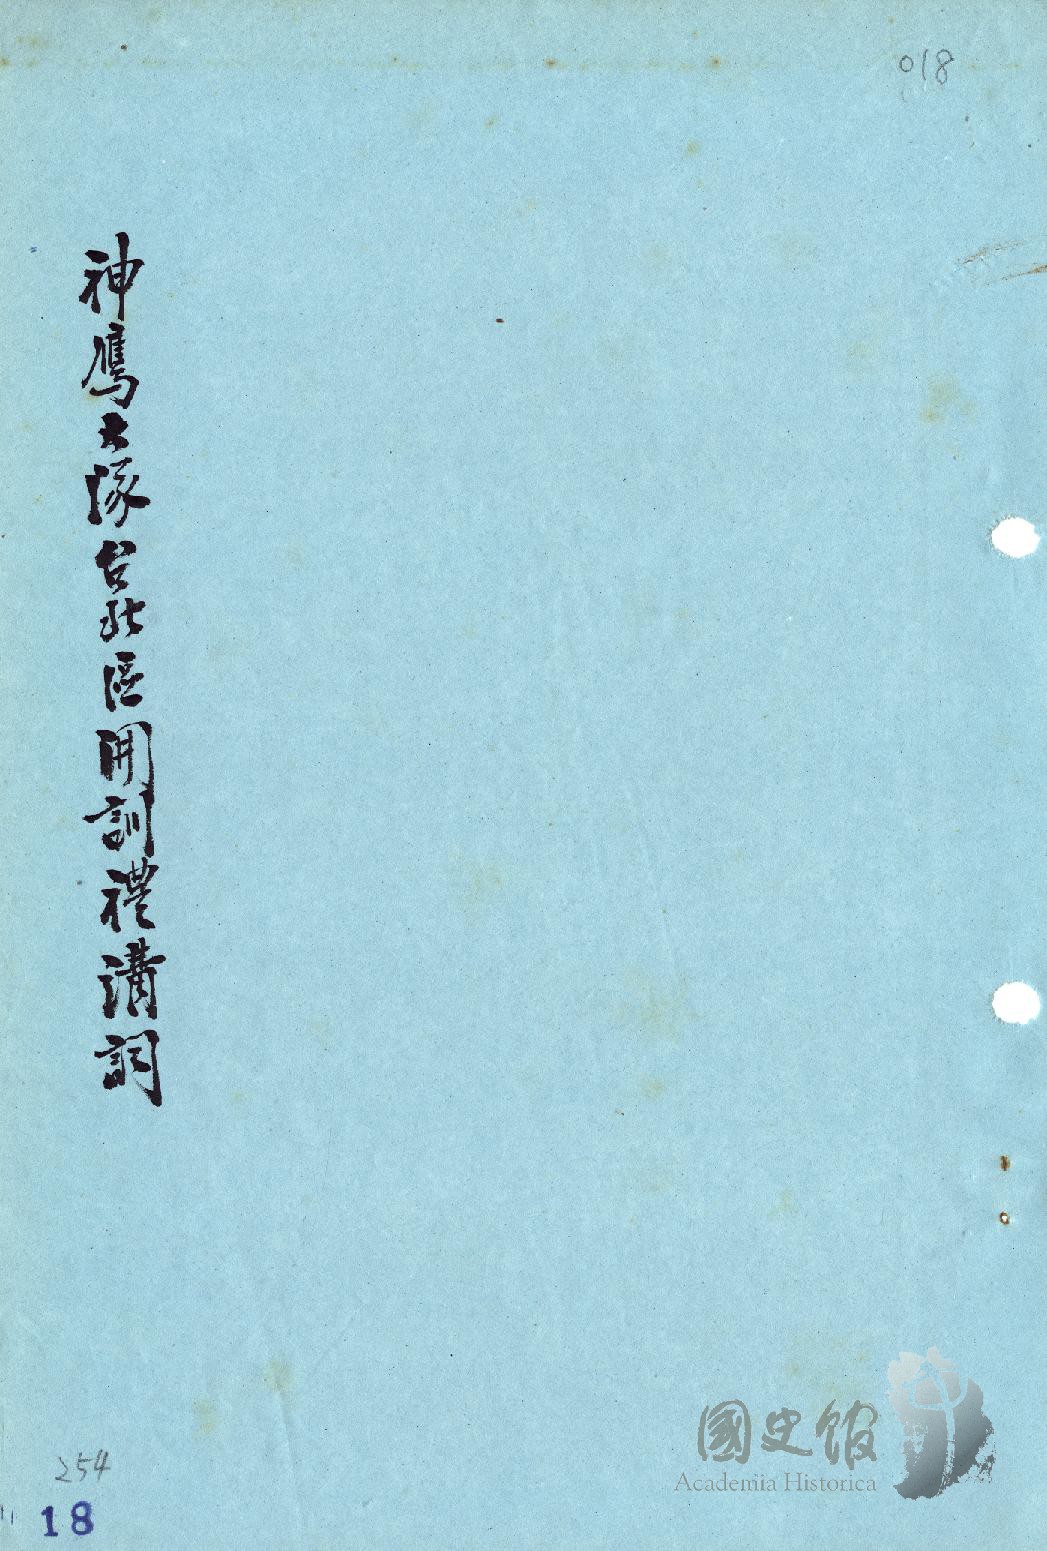 018
神鷹大隊台北區開訓禮講詞
國史館
Academia Historica
254
18